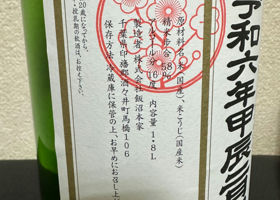 令和六年甲辰
原材料名 米(国産)、米こうじ(国産米)
精米歩合 68%
アルコール分 16
内容量 1.8L
製造者 株式会社飯沼本家
千葉県印旛郡酒々井町馬橋106
保存方法 冷蔵庫に保管の上、お早めにお召し上
20歳になってから。
・授乳期の飲酒は、お控え下さい。